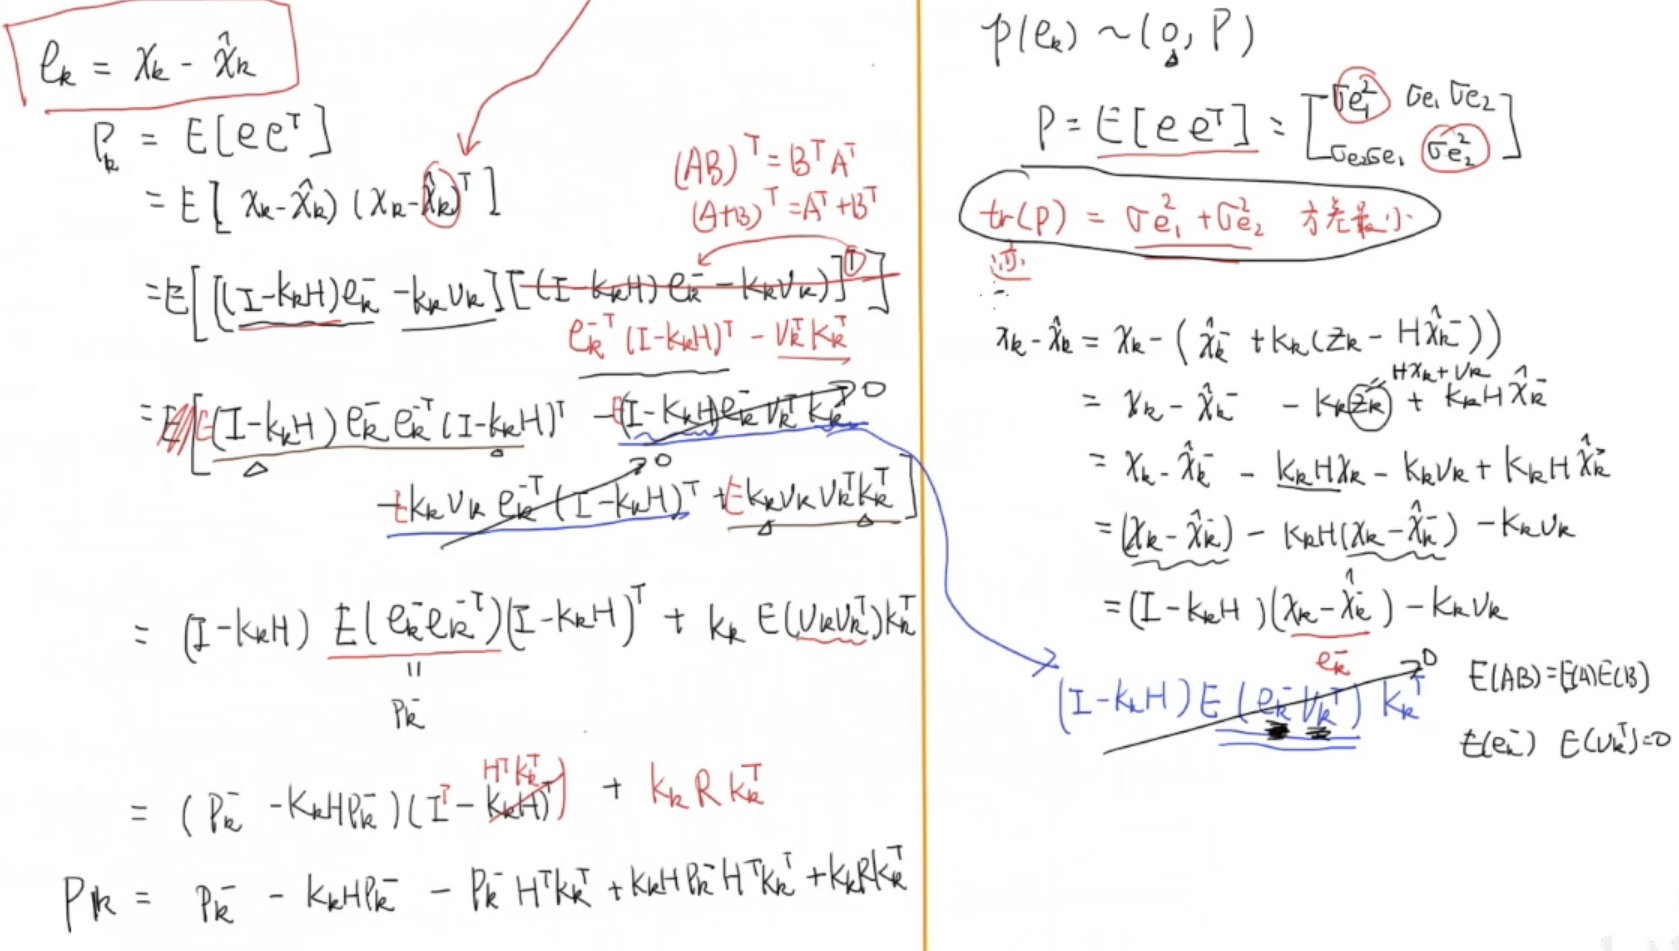 e_k = x_k - x̂_k
P_k = E[e e^T]
= E[ x_k - x̂_k) (x_k - x̂_k)^T ]
(AB)^T = B^T A^T
(A+B)^T = A^T + B^T
= E[[(I - K_kH)e_k^- - K_kv_k][(I - K_kH)e_k^- - K_kv_k)]^T]
e_k^-T (I - K_kH)^T - v_k^T K_k^T
= E[E(I - K_kH) e_k^- e_k^-T (I - K_kH)^T - E(I - K_kH)e_k^- v_k^T K_k^T → 0
- E K_k v_k e_k^-T (I - K_kH)^T → 0 + E K_k v_k v_k^T K_k^T ]
= (I - K_kH) E(e_k^- e_k^-T)(I - K_kH)^T + K_k E(v_k v_k^T)K_k^T
"
P_k^-
H^T K_k^T
= (P_k^- - K_kHP_k^-)(I^T - K_kH)^T) + K_k R K_k^T
P_k = P_k^- - K_kHP_k^- - P_k^- H^T K_k^T + K_kHP_k^- H^T K_k^T + K_kRK_k^T
p(e_k) ~ (0, P)
P = E[e e^T] = [σe_1^2 σe_1 σe_2
σe_2σe_1 σe_2^2]
tr(P) = σe_1^2 + σe_2^2 方差最小
迹
x_k - x̂_k = x_k - (x̂_k^- + K_k(z_k - Hx̂_k^-))
Hx_k + v_k
= x_k - x̂_k^- - K_k z_k + K_kH x̂_k^-
= x_k - x̂_k^- - K_kHx_k - K_kv_k + K_kH x̂_k^-
= (x_k - x̂_k^-) - K_kH(x_k - x̂_k^-) - K_kv_k
= (I - K_kH)(x_k - x̂_k^-) - K_kv_k
e_k^-
(I - K_kH) E(e_k^- v_k^T) K_k^T → 0
E(AB) = E(A)E(B)
E(e_k^-) E(v_k^T) = 0